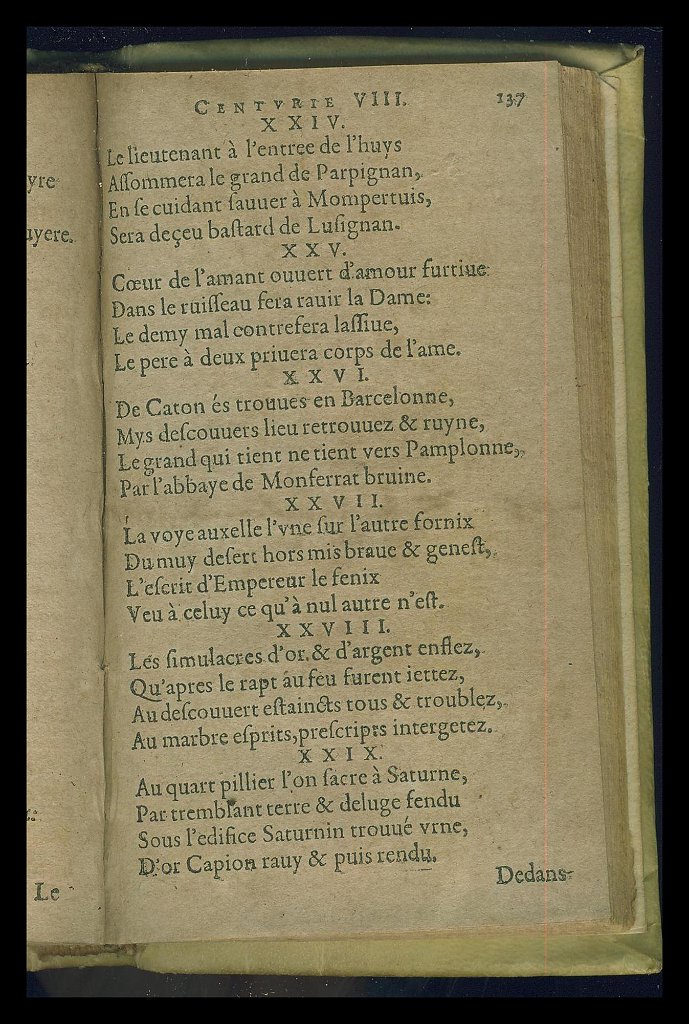 yre
uyere.
Le
CENTVRIE VIII. 137
XXIV.
Le lieutenant à l'entree de l'huys
Aſſommera le grand de Parpignan,
En ſe cuidant ſauuer à Mompertuis,
Sera deçeu baſtard de Luſignan.
XXV.
Cœur de l'amant ouuert d'amour furtiue
Dans le ruiſſeau fera rauir la Dame:
Le demy mal contrefera laſſiue,
Le pere à deux priuera corps de l'ame.
XXVI.
De Caton és trouues en Barcelonne,
Mys deſcouuers lieu retrouuez & ruyne,
Le grand qui tient ne tient vers Pamplonne,
Par l'abbaye de Monferrat bruine.
XXVII.
La voye auxelle l'vne ſur l'autre fornix
Du muy deſert hors mis braue & geneſt,
L'eſcrit d'Empereur le fenix
Veu à celuy ce qu'à nul autre n'eſt.
XXVIII.
Les ſimulacres d'or & d'argent enflez,
Qu'apres le rapt au feu furent iettez,
Au deſcouuert eſtaincts tous & troublez,
Au marbre eſprits, preſcripts intergetez.
XXIX.
Au quart pillier l'on ſacre à Saturne,
Par tremblant terre & deluge fendu
Sous l'edifice Saturnin trouué vrne,
D'or Capion rauy & puis rendu.
Dedans